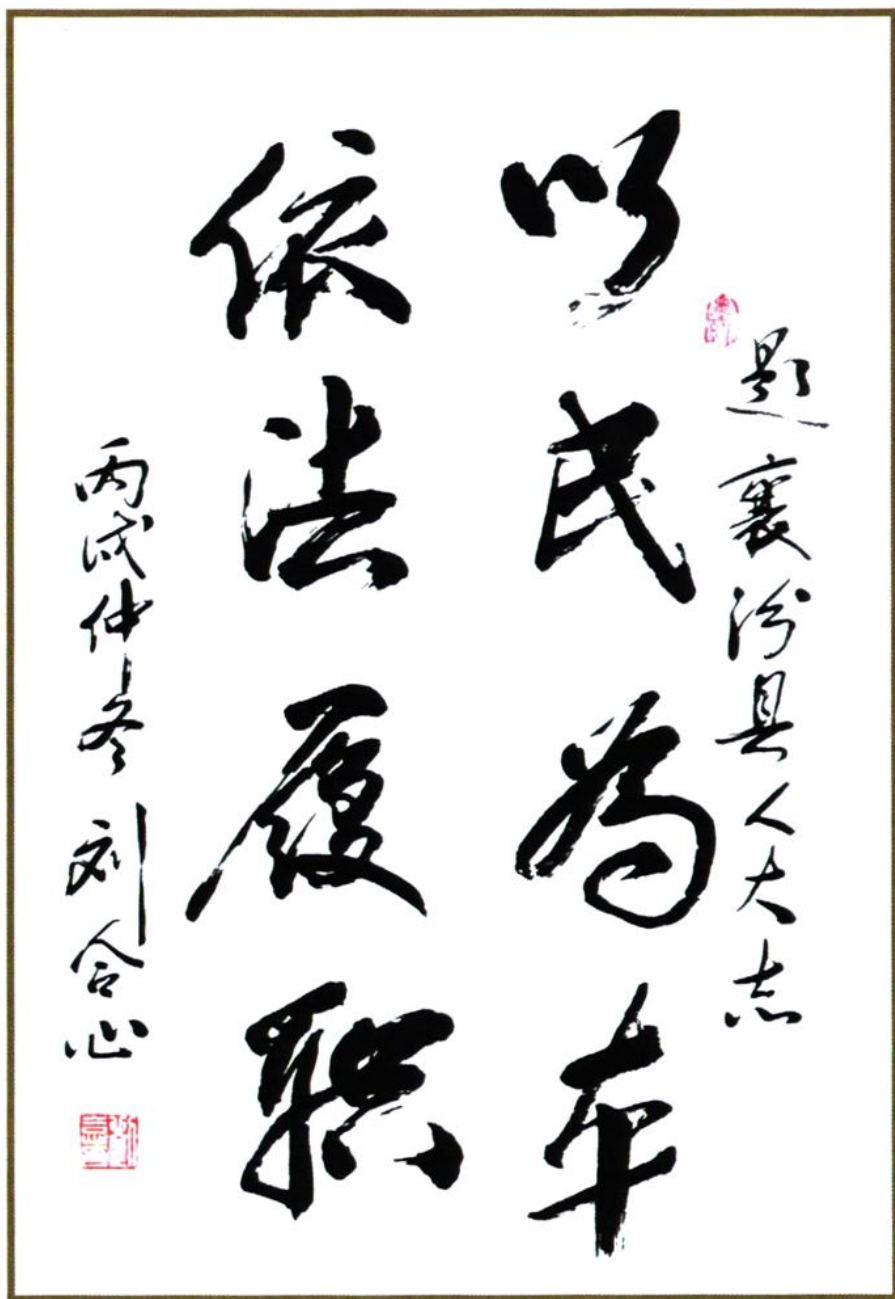 题襄汾县人大志
以民为本
依法履职
丙戌仲冬 刘合心